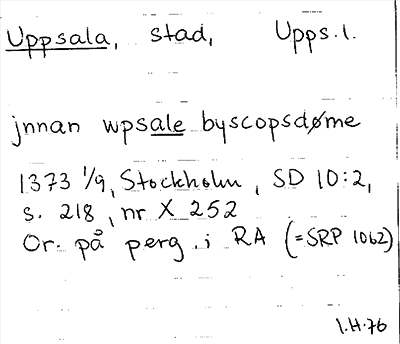 Uppsala, stad, Upps.l.
jnnan wpsale byscopsdøme
1373 1/9, Stockholm, SD 10:2,
s. 218, nr X 252
Or. på perg. i RA (=SRP 1062)
I.H.76